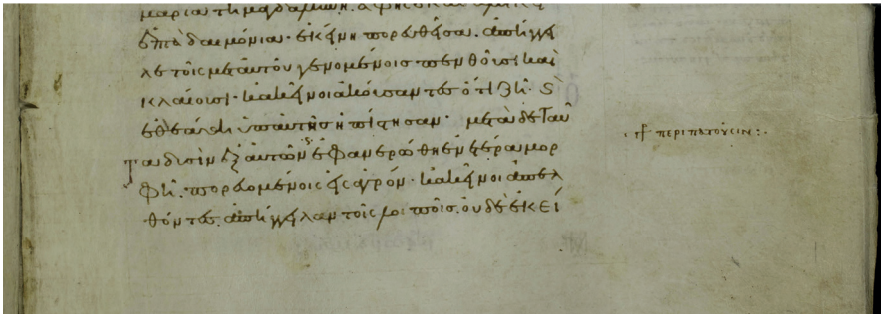 μαρία τῆ μαγδαληνῆ. ἀφ ἧς
ἑπτὰ δαιμόνια· ἐκείνη πορευθεῖσα. ἀπήγγει
λε τοῖς μετ αὐτοῦ γενομένοις πενθοῦσι καὶ
κλαίουσι· κακεῖνοι ἀκούσαντες ὅτι ζῆ· ϗ
ἐθεάθη ὑπ αὐτῆς ἠπίστησαν· μετὰ δὲ ταῦ
τα δυσὶν ἐξ αὐτῶν ἐφανερώθη ἐν ἑτέρα μορ
φῆ. πορευομένοις εἰς ἀγρόν· κακεῖνοι ἀπελ
θόντες. ἀπήγγειλαν τοῖς λοιποῖς. οὐδὲ ἐκεί
περιπατοῦσιν:·